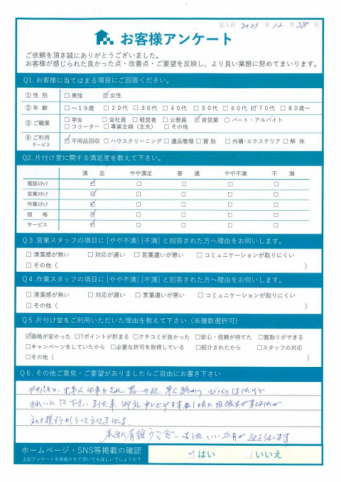 記入日 2021 年 12 月 28 日
お客様アンケート
ご依頼を頂き誠にありがとうございました。
お客様が感じられた良かった点・改善点・ご要望を反映し、より良い業務に努めてまいります。
Q1. お客様に当てはまる項目にご回答ください。
① 性 別 □ 男性 ☑ 女性
② 年 齢 □ ～19歳 □ 20代 □ 30代 □ 40代 □ 50代 □ 60代 ☑ 70代 □ 80歳～
③ ご職業 □ 学生 □ 会社員 □ 経営者 □ 公務員 ☑ 自営業 □ パート・アルバイト
□ フリーター □ 専業主婦（主夫） □ その他
④ ご利用サービス ☑ 不用品回収 □ ハウスクリーニング □ 遺品整理 □ 買取 □ 外構・エクステリア □ 解体
Q2. 片付け堂に関する満足度を教えて下さい。
満 足 やや満足 普 通 やや不満 不 満
電話スタッフ ☑ □ □ □ □
営業スタッフ ☑ □ □ □ □
作業スタッフ ☑ □ □ □ □
価 格 ☑ □ □ □ □
サービス ☑ □ □ □ □
Q3. 営業スタッフの項目に[やや不満][不満]と回答された方へ理由をお伺いします。
□ 清潔感が無い □ 対応が遅い □ 言葉遣いが悪い □ コミュニケーションが取りにくい
□ その他（ ）
Q4. 作業スタッフの項目に[やや不満][不満]と回答された方へ理由をお伺いします。
□ 清潔感が無い □ 対応が遅い □ 言葉遣いが悪い □ コミュニケーションが取りにくい
□ その他（ ）
Q5. 片付け堂をご利用いただいた理由を教えて下さい（※複数選択可）
☑ 価格が安かった □ Tポイントが貯まる □ クチコミが良かった □ 安心・信頼が持てた □ 買取りができる
□ キャンペーンをしていたから □ 必要な許可を取得している □ 紹介されたから □ スタッフの対応
□ その他（ ）
Q6. その他ご意見・ご要望がありましたらご自由にお書き下さい
ホームページ・SNS等掲載の確認
上記アンケートを掲載させて頂いても宜しいでしょうか？
☑ はい □ いいえ